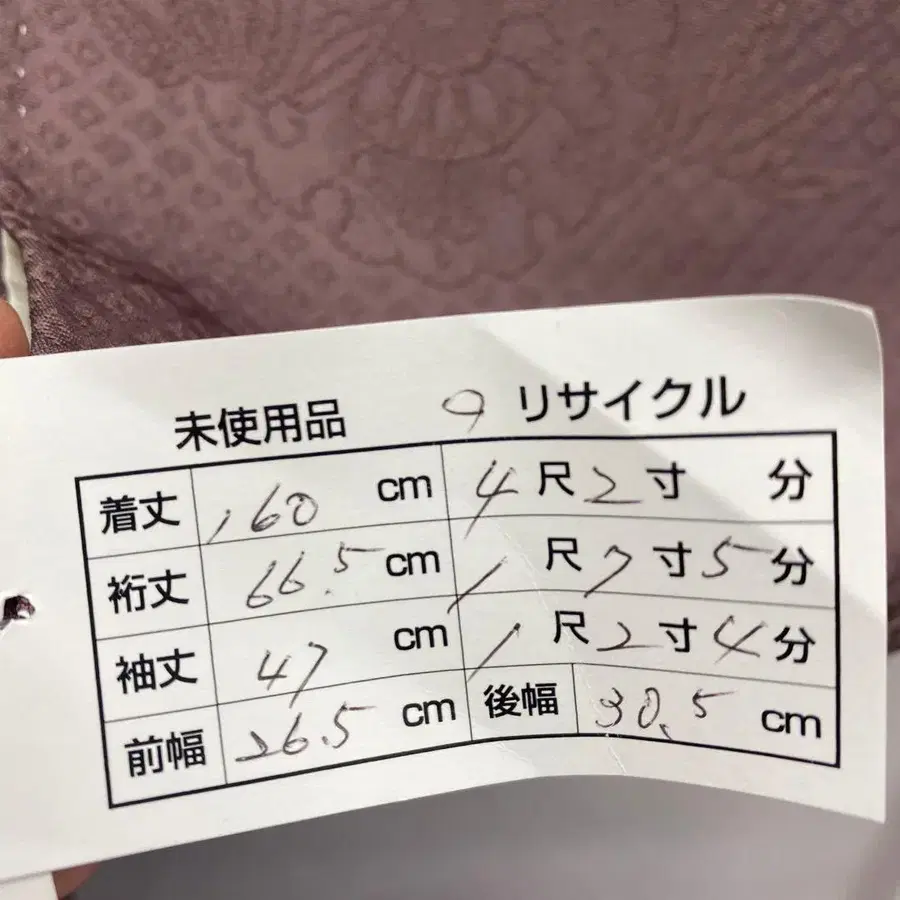 未使用品 リサイクル
着丈 160 cm 4尺2寸 分
裄丈 66.5 cm 1尺7寸5分
袖丈 47 cm 1尺2寸4分
前幅 26.5 cm 後幅 30.5 cm